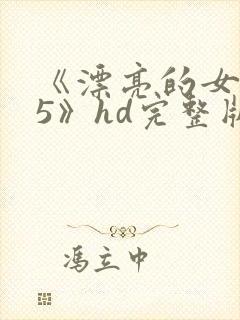 《漂亮的女
5》hd完整版
冯立中